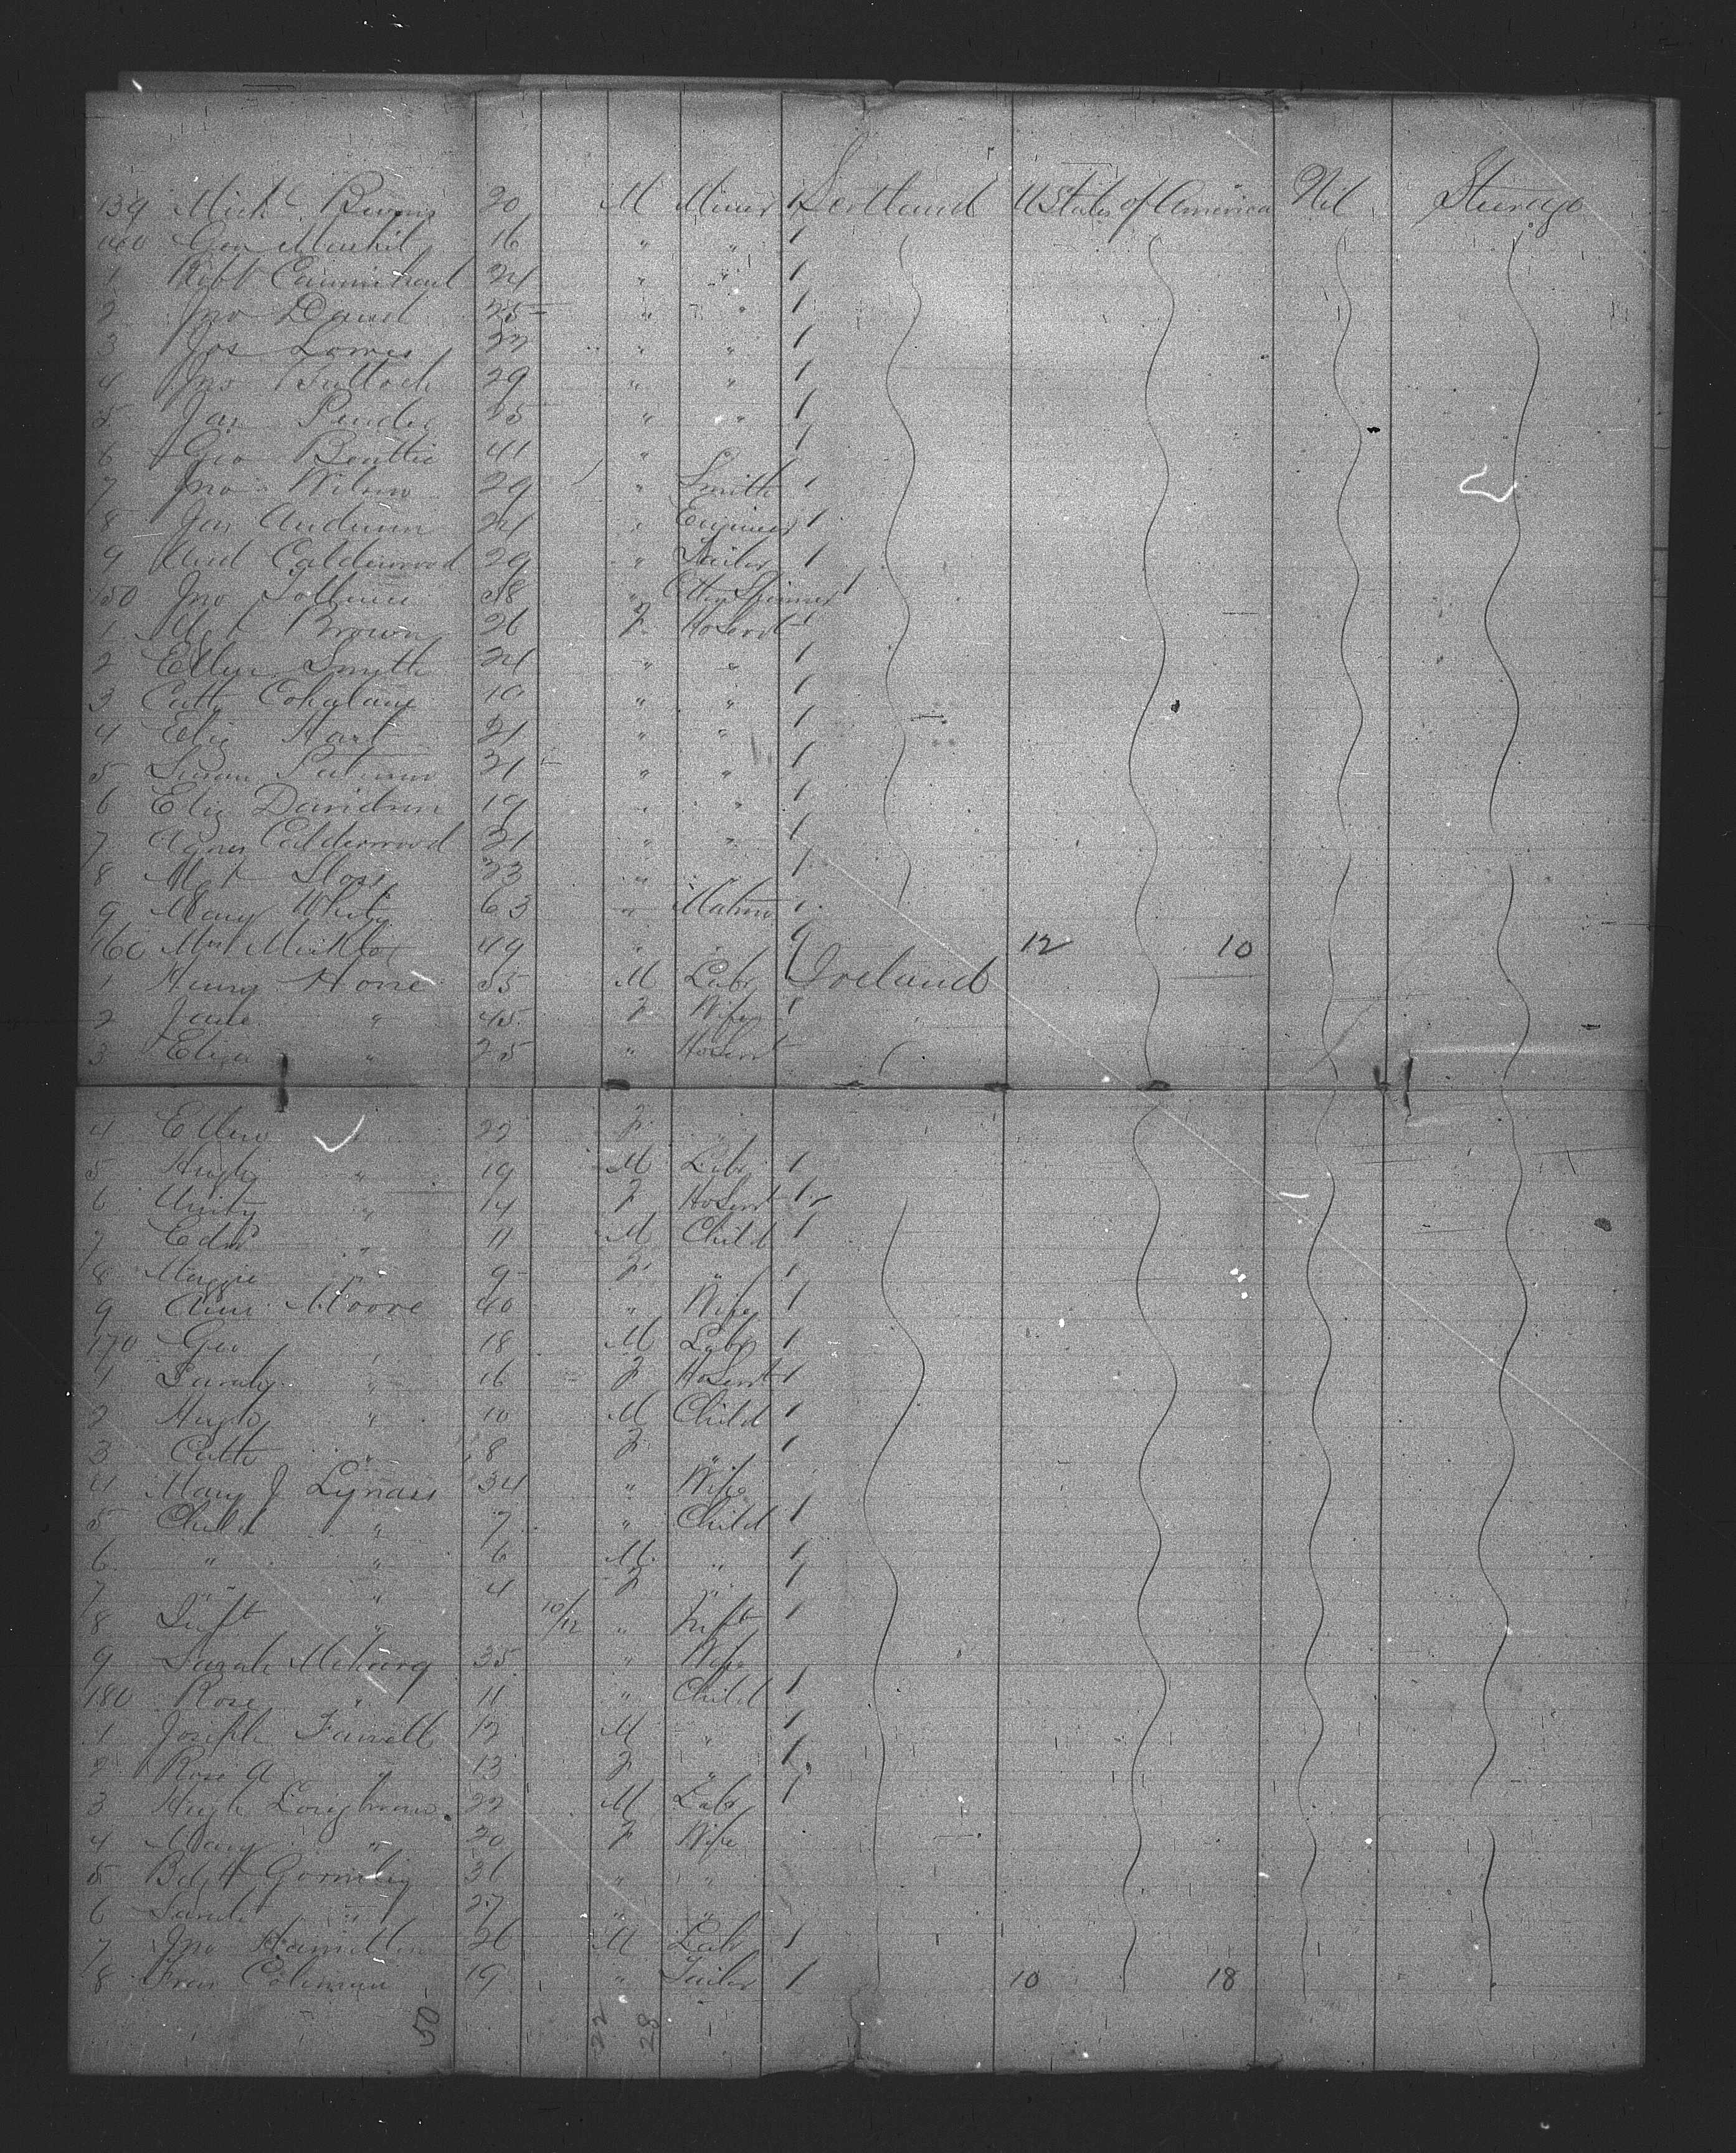 139 Mich Burns 20 M Miner 1 Scotland U States of America Nil Steerage
140 Geo 16 " " 1
1 Robt Carmichael 24 " " 1
2 Jno David 25 " " 1
3 Jos Lowes 22 " " 1
4 Jno Tulloch 29 " " 1
5 Jas 25 " " 1
6 Geo Beattie 41 " 1
7 Jno Wilson 29 " Smith 1
8 Jas Anderson 24 " Engineer 1
9 Calderwood 29 " Tailor 1
150 Jno 38 " Spinner 1
1 Mgt Brown 26 F HoServt 1
2 Ellen Smith 24 " " 1
3 Cath 10 " " 1
4 Eliz Hart 21 " " 1
5 Susan 21 " " 1
6 Eliz Davidson 19 " " 1
7 Agnes Calderwood 31 " " 1
8 Mgt 23 " 1
9 Mary White 63 " Matron 1
160 Mrs 49 " 1 12 10
1 Henry Horre 55 M Labr 1 Ireland
2 Jane " 45 F Wife 1
3 Eliza " 25 " HoServt
4 Ellen " 22 F "
5 Hugh " 19 M Labr 1
6 Unity " 14 F HoServt 1
7 Edw " 11 M Child 1
8 Maggie " 9 F " 1
9 Ann Moore 40 " Wife 1
170 Geo " 18 M Labr 1
1 Sarah " 16 F HoServt 1
2 Hugh " 10 M Child 1
3 Cath " 8 F " 1
4 Mary J Lynass 34 " Wife
5 Child " 7 " Child 1
6 " " 6 M " 1
7 " " 4 F " 1
8 Inft " 10/12 " Inft 1
9 Sarah 35 " Wife
180 Rose " 11 " Child 1
1 Joseph Farrell 12 M " 1
2 Rose A " 13 F " 1
3 Hugh 22 M Labr 1
4 Mary " 20 F Wife
5 Bdgt Gormley 36 " "
6 Sarah " 27 " "
7 Jno Hamilton 26 M Labr 1
8 Fras Coleman 19 " Tailor 1 10 18
50 22 28